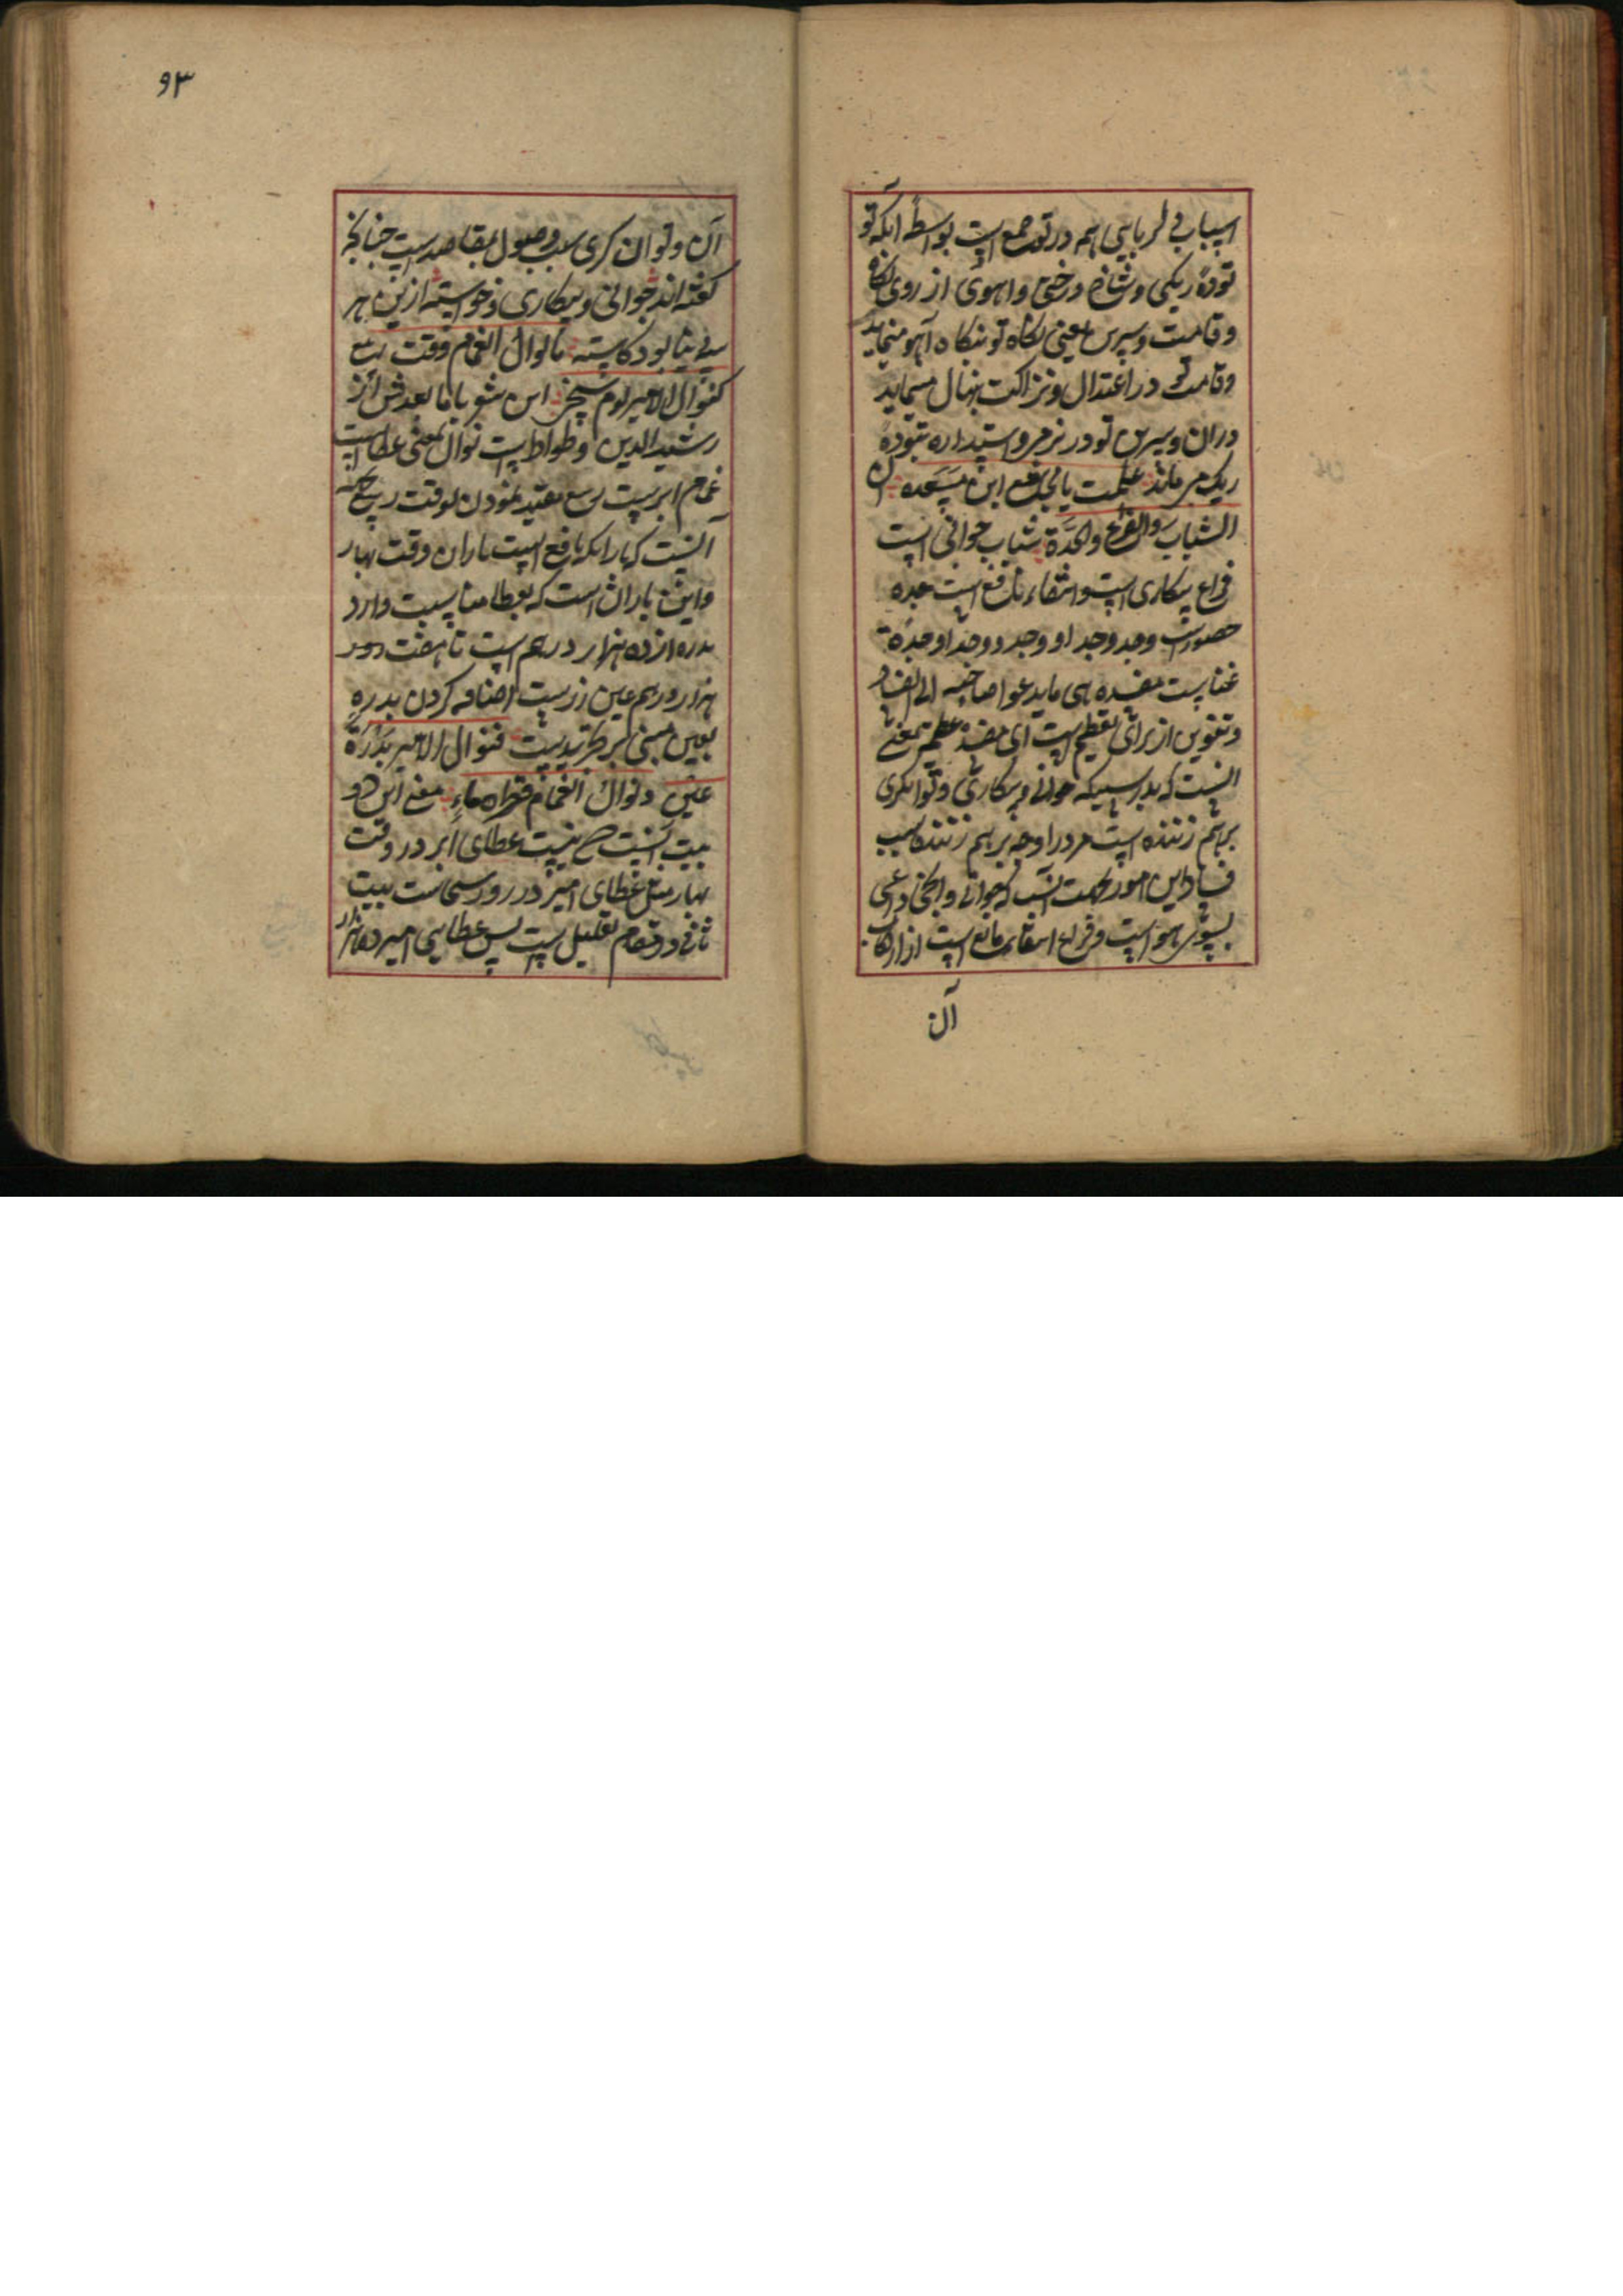 اسباب دلربایی همه در تو جمع است بواسطه آنکه تو
توده ریکی و شاخ درختی و اهوی از روی نکاه
و قامت و سرین یعنی نکاه تو بنکاه آهو میماند
و قامت تو در اعتدال و نزاکت بنهال میماند
دران و سرین تو در نرمی و استداره بتوده
ریک می ماند علمت یا مجاشع ابن مسعده ان
الشباب والفراغ والجدة شباب جوانی است
فراغ بیکاری است و انتفاء مانع است جده
وجد وجد او وجد و وجدا و جدة
غناست مفسده هی ما یدعوا صاحبه الی الفساد
و تنوین از برای تعظیم است ای مفسدة عظیمة معنی
انست که بدرستیکه جوانی و بیکاری و توانکری
برهم زننده است مرد را وجه برهم زننده سبب
فساد این امور بجهت انست که جوانی داعی
بسوی هواست و فراغ انتفای مانع است از ارتکاب
آن
۹۳
آن و توان کری سبب وصول بمقاصد است چنانچه
کفته اند جوانی و بیکاری و خواسته ازین هر
سه بود کاسته ما نوال الغمام وقت ربیع
کنوال الامیر یوم سخی این شعر با ما بعدش از
رشید الدین وطواط است نوال بمعنی عطاست
غمام ابرست ربیع مقید نمودن بوقت ربیع بجهة
آنست که بارانکه نافع است باران وقت بهار
و این باران است که بعطا مناسبت دارد
بدره از ده هزار درهم است تا هفت
هزار درهم عین زرست اضافه کردن بدره
بعین مبنی بر تجریدست فنوال الامیر بدرة
عین و نوال الغمام قطرة ماء معنی این دو
بیت آنست که نیست عطای ابر در وقت
بهار مثل عطای امیر در روز سخاست بیت
ثانی در مقام تعلیل است پس عطایی امیر ده هزار